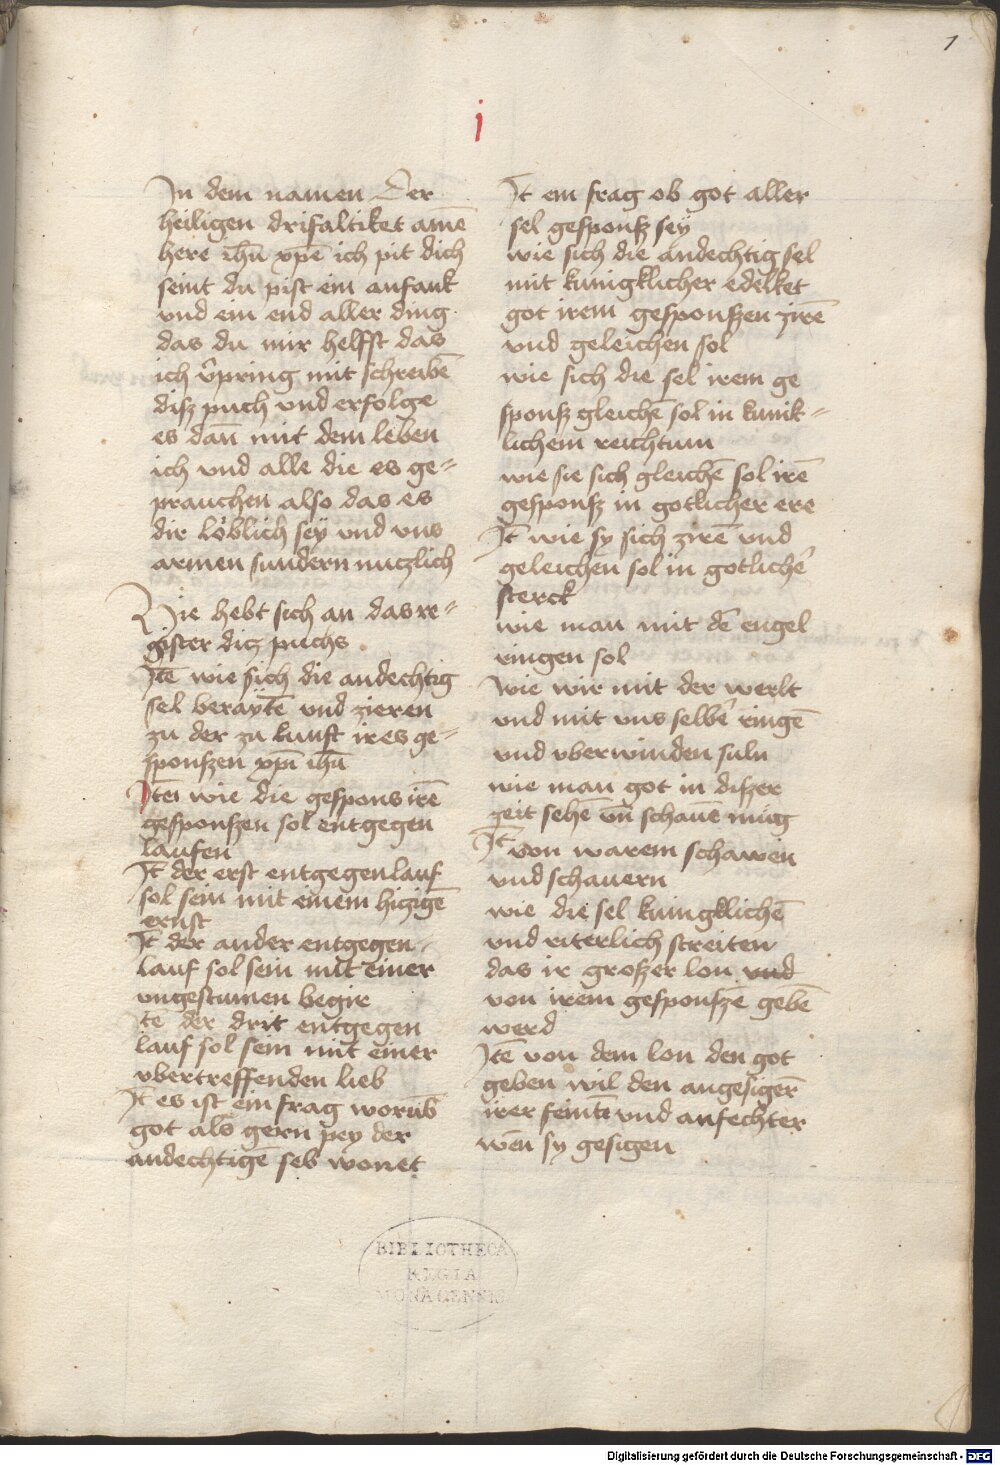 1
i
In dem namen Der
heiligen drifaltiket amē
here ih̄u xp̄e ich pit dich
seint du pist ein anfank
vnd ein end aller ding
das du mir helffst das
ich v̉pring mit schreibē
disz puch vnd erfolge
es dan̄ mit dem leben
ich vnd alle die es ge=
prauchen also das es
dir löblich seÿ vnd vns
armen sundern nuczlich
Hie hebt sich an das re=
gister dicz puchs
Itē wie sich die andechtig
sel beraÿtē vnd zieren
zu der zu kunft ires ge=
sponszen xp̄i ih̄u
Itē wie die gespons irē
gesponszen sol entgegen
laufen
It̄ der erst entgegenlauf
sol sein mit einem hiczigē
ernst
It̄ der ander entgegen=
lauf sol sein mit einer
vngestumen begir
Itē der drit entgegen
lauf sol sein mit einer
vbertreffenden lieb
It̄ es ist ein frag worūb
got als gern peÿ der
andechtigē sel wonet
It̄ ein frag ob got aller
sel gesponsz seÿ
wie sich die andechtig sel
mit kunigklicher edelket
got irem gesponszen zirē
vnd geleichen sol
wie sich die sel irem ge
sponsz gleichē sol in kunik=
lichem reichtum
wie sie sich gleichē sol irē
gesponsz in gotlicher ere
It̄ wie sy sich zirē vnd
geleichen sol in gotlichē
sterck
wie man mit dē engel
ringen sol
wie wir mit der werlt
vnd mit vns selbē ringē
vnd vberwinden suln
wie man got in diszer
zeit sehē vn̄ schauē mug
It̄ von warem schawen
vnd schauern
wie die sel kunigklichē
vnd riterlich streiten
das ir groszer lon vnd
von irem gesponszē gebē
werd
Itē von dem lon den got
geben wil den angesigerē
irer feintē vnd anfechter
wen̄ sy gesigen
BIBLIOTHECA
REGIA
MONACENSIS
Digitalisierung gefördert durch die Deutsche Forschungsgemeinschaft - DFG